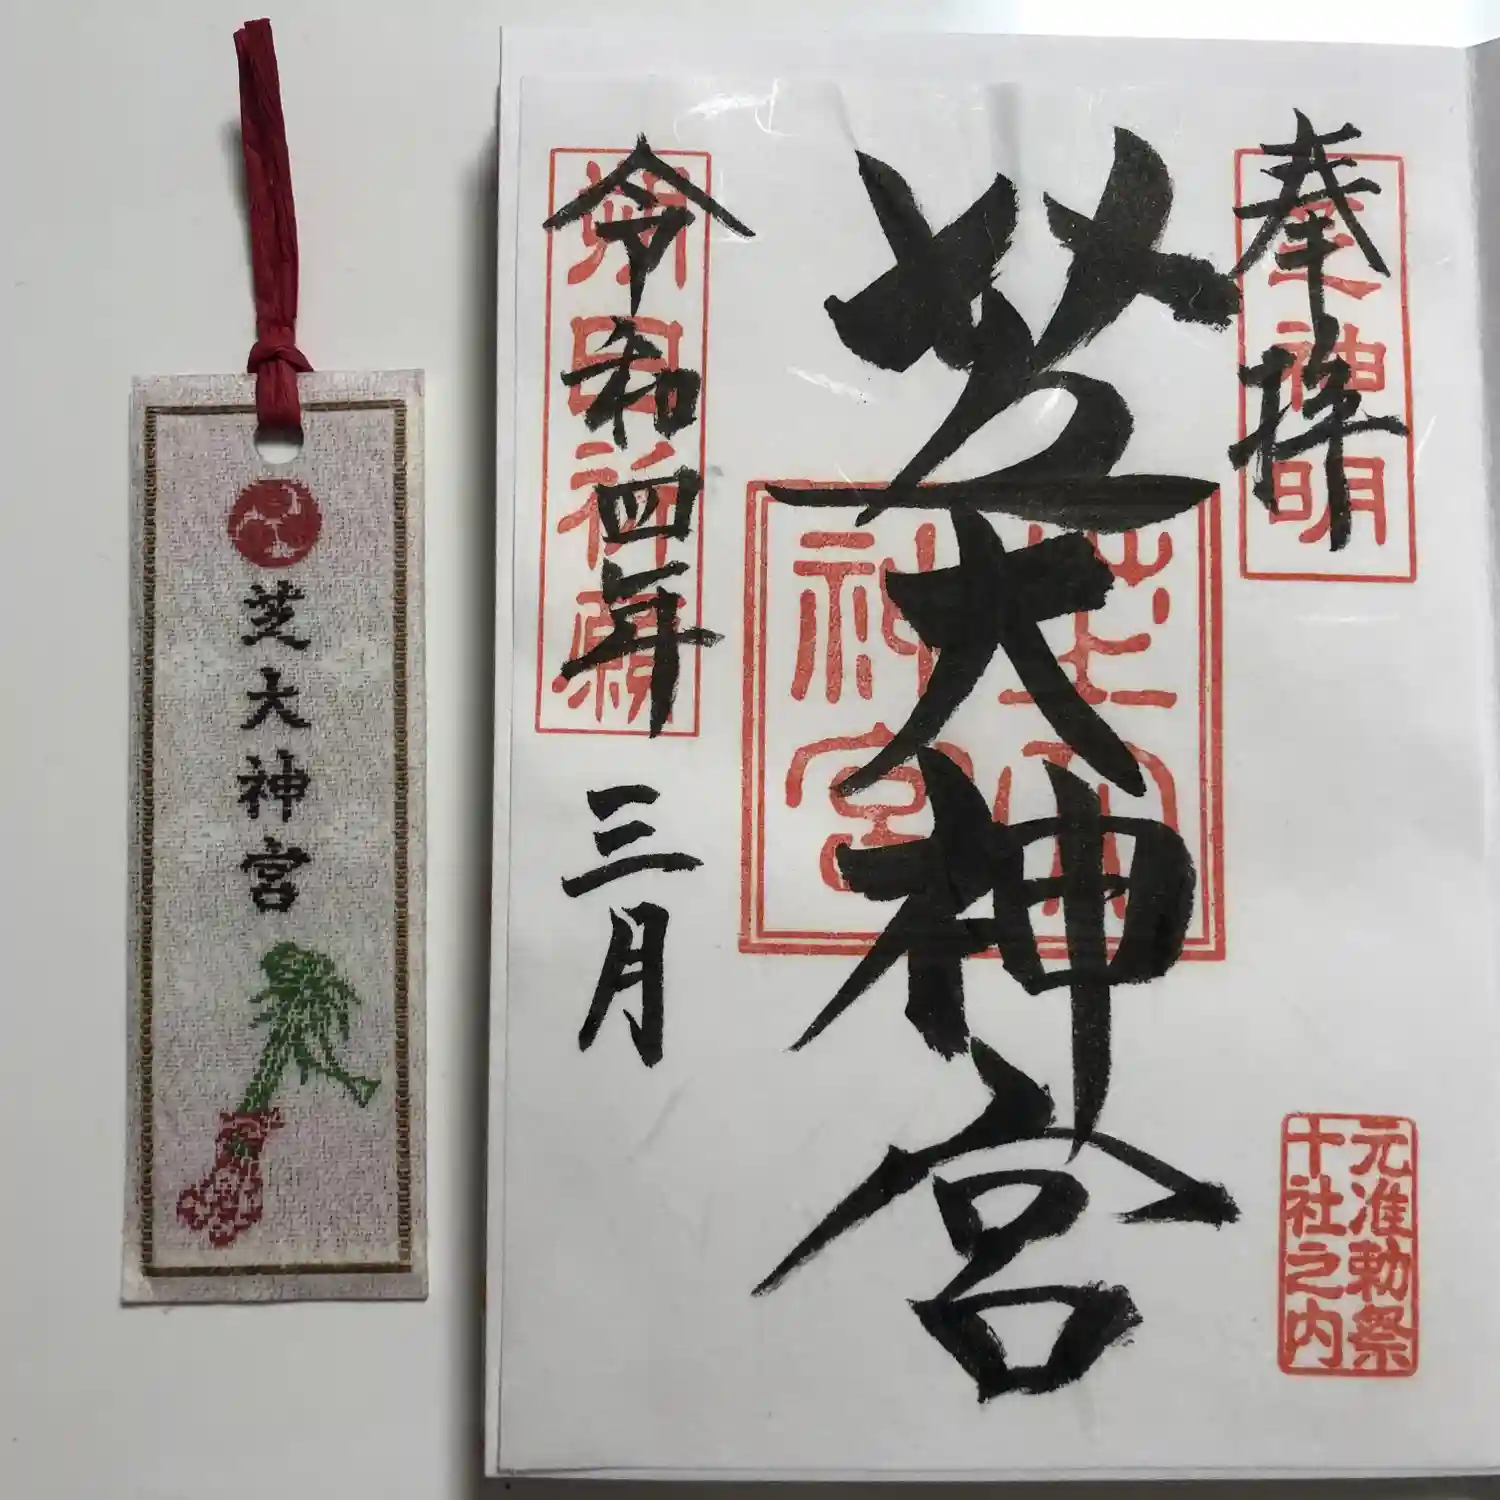 奉拝
芝神明
元准勅祭
十社之内
芝大神宮
芝大
神宮
令和四年三月
芝大神宮